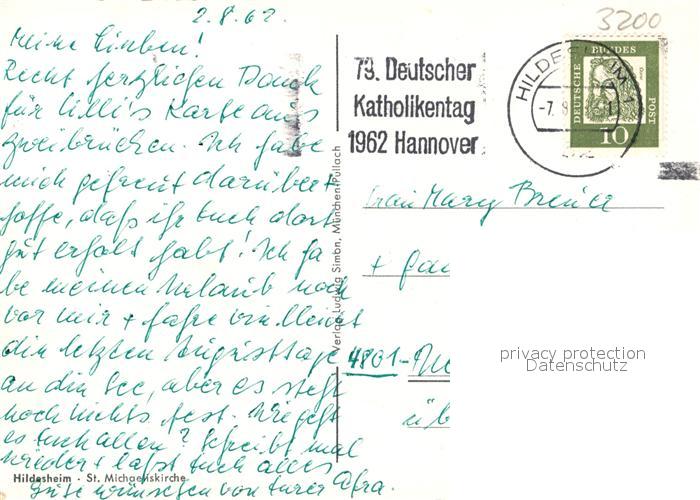 2.8.62.
3200
Meine Lieben!
Recht herzlichen Dank
für Lilli's Karte aus
Zweibrücken. Ich habe
mich gefreut darüber +
hoffe, daß ihr Euch dort
gut erholt habt! Ich ha
be meinen Urlaub noch
vor mir + fahre vielleicht
die letzten Augusttage
an die See, aber es steht
noch nichts fest. Wie geht
es Euch allen? Schreibt mal
wieder + laßt Euch alles
Gute wünschen von Eurer Afra.
Hildesheim - St. Michaeliskirche
Verlag Ludwig Simon, München-Pullach
79. Deutscher
Katholikentag
1962 Hannover
HILDESHEIM
-7.8.
DEUTSCHE BUNDESPOST
10
Frau Mary Breuer
+ Fam
4801-
üb
privacy protection
Datenschutz